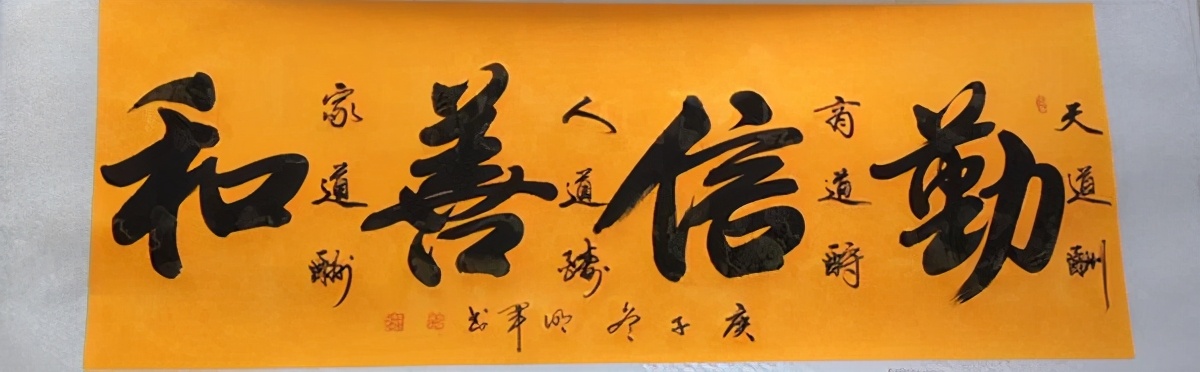 天道酬
勤
商道酬
信
人道酬
善
家道酬
和
庚子冬明军书